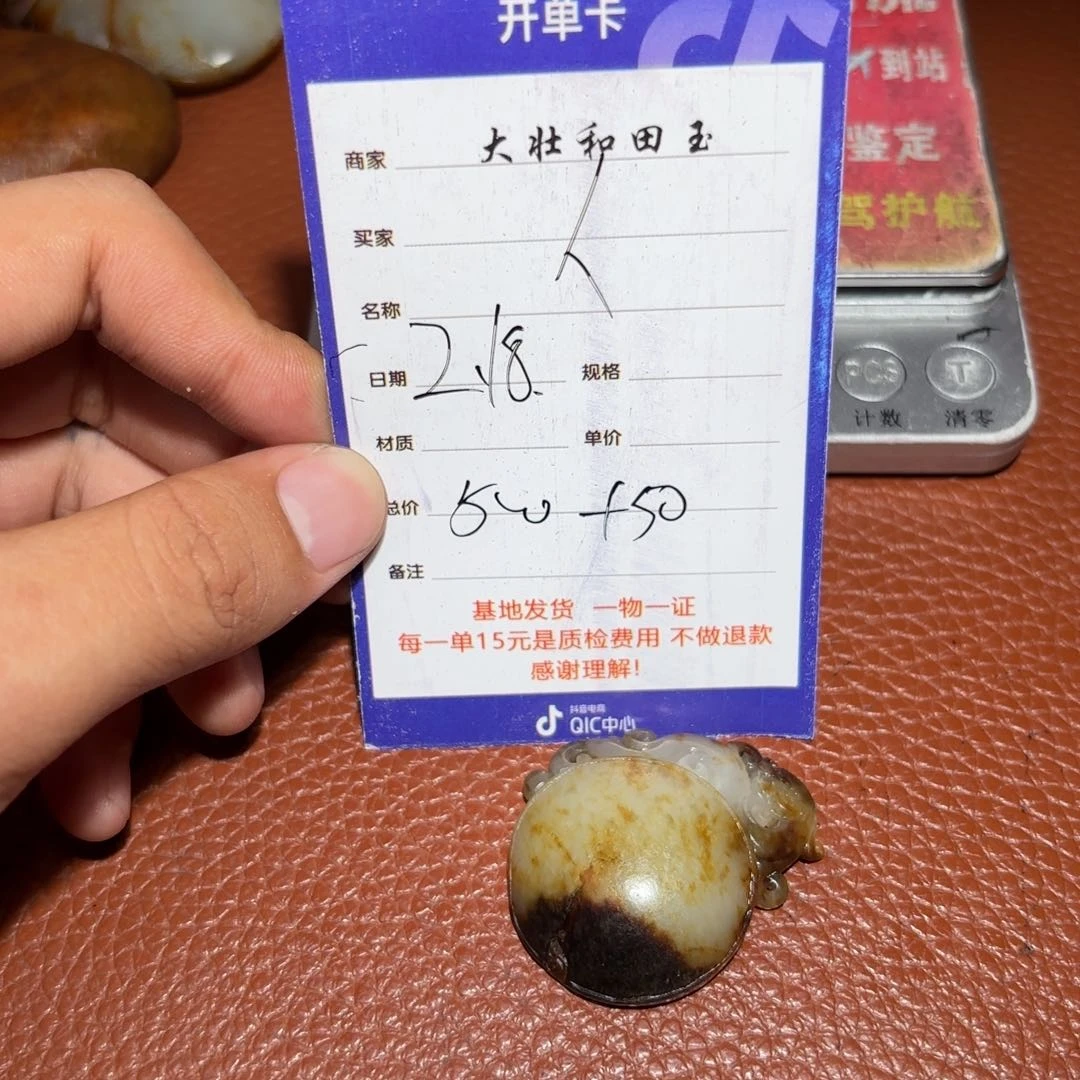 开单卡
商家 大壮和田玉
买家 人
名称
日期 2.18. 规格
材质 单价
总价 500 +50
备注
基地发货 一物一证
每一单15元是质检费用 不做退款
感谢理解!
抖音电商
QIC中心
到站
鉴定
驾护航
PCS T
计数 清零